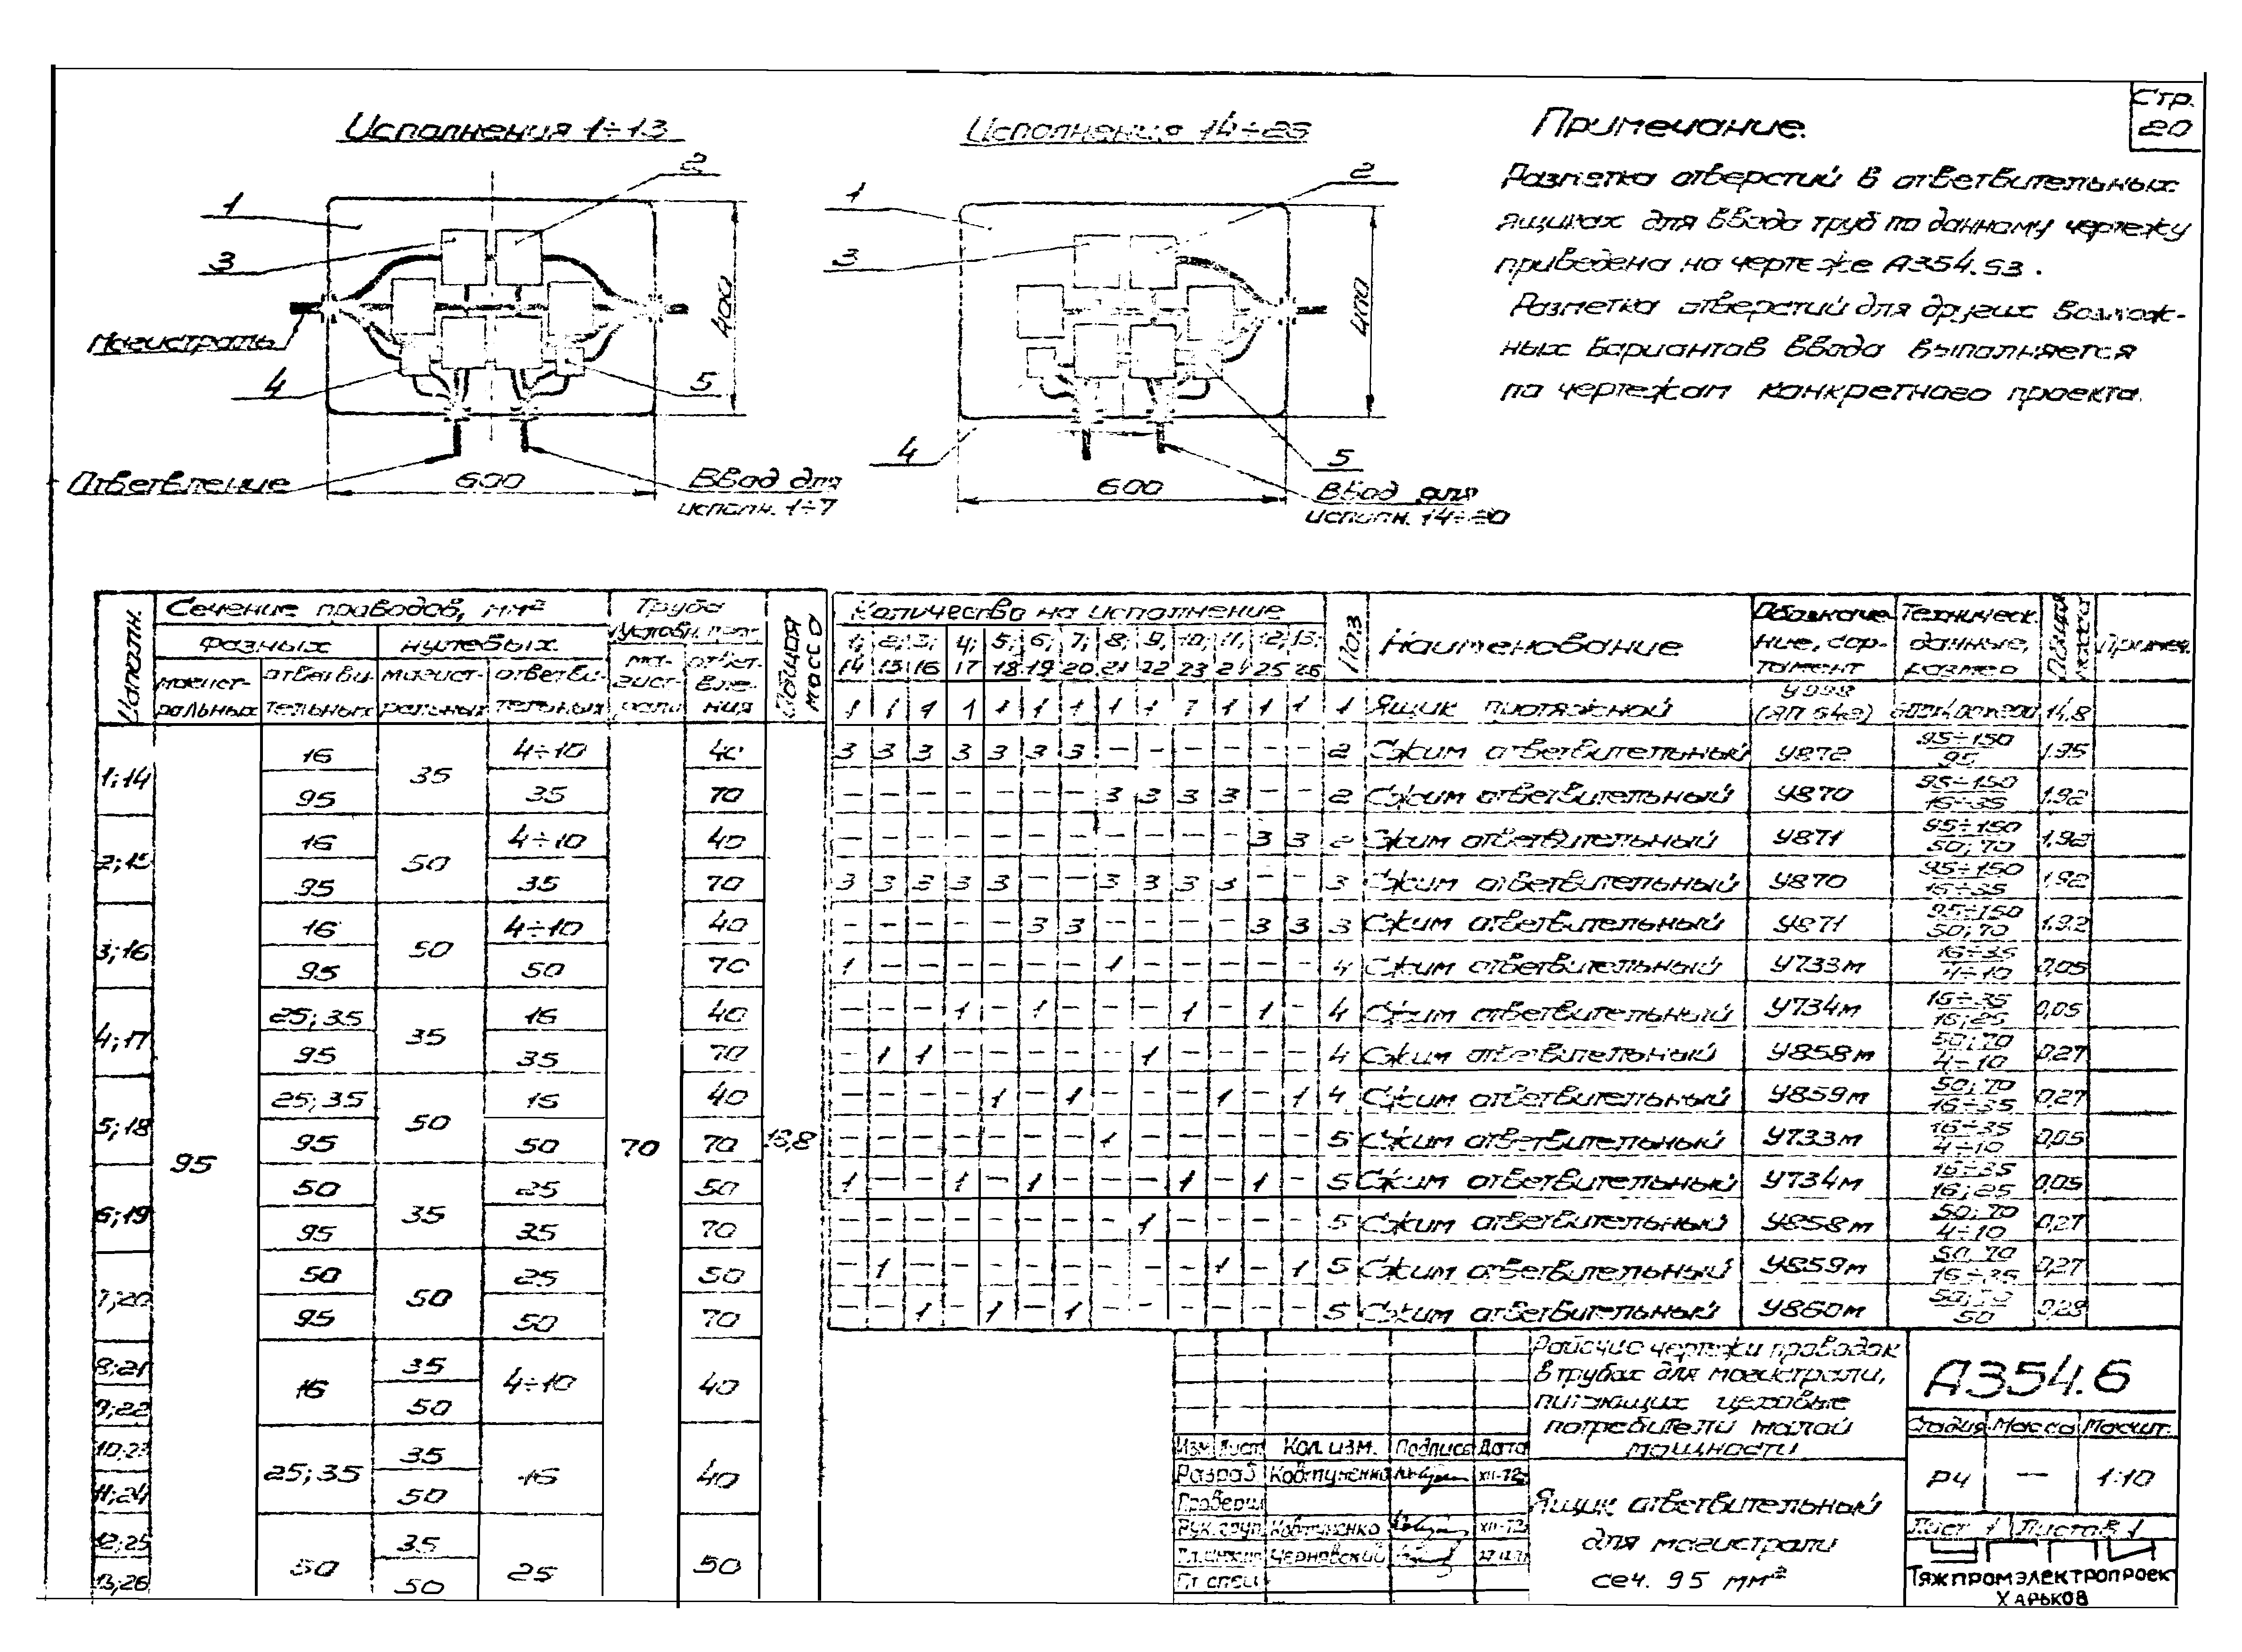 Стр.
20
Исполнения 1÷13
1
2
3
Магистраль
4
5
400
600
Ответвление
Ввод для
исполн. 1÷7
Исполнения 14÷26
1
2
3
4
5
400
600
Ввод для
исполн. 14÷20
Примечание.
Разметка отверстий в ответвительных
ящиках для ввода труб по данному чертежу
приведена на чертеже А354.53.
Разметка отверстий для других возмож-
ных вариантов ввода выполняется
по чертежам конкретного проекта.
Исполн. Сечение проводов, мм² Труба Общая масса
фазных нулевых
магист-ральных ответви-тельных магист-ральных ответви-тельных ма-гист-рали ответ-вле-ния
1;14 95 16 35 4÷10 70 40 18,8
95 35 70
2;15 16 50 4÷10 40
95 35 70
3;16 16 50 4÷10 40
95 50 70
4;17 25;35 35 16 40
95 35 70
5;18 25;35 50 16 40
95 50 70
6;19 50 35 25 50
95 35 70
7;20 50 50 25 50
95 50 70
8;21 16 35 4÷10 40
9;22 50
10;23 25;35 35 16 40
11;24 50
12;25 50 35 25 50
13;26 50
Количество на исполнение Поз Наименование Обозначе-ние, сор-тамент Техническ. данные, размер Общая масса Примеч.
1; 2; 3; 4; 5; 6; 7; 8; 9; 10; 11; 12; 13;
14 15 16 17 18 19 20 21 22 23 24 25 26
1 1 1 1 1 1 1 1 1 1 1 1 1 1 Ящик протяжной У998 14,8
3 3 3 3 3 3 3 – – – – – – 2 Сжим ответвительный У872 95÷150 / 95 1,95
– – – – – – – 3 3 3 3 – – 2 Сжим ответвительный У870 95÷150 / 16÷35 1,92
– – – – – – – – – – – 3 3 2 Сжим ответвительный У871 95÷150 / 50; 70 1,92
3 3 3 3 3 – – 3 3 3 3 – – 3 Сжим ответвительный У870 95÷150 / 16÷35 1,92
– – – – – 3 3 – – – – 3 3 3 Сжим ответвительный У871 95÷150 / 50; 70 1,92
1 – – – – – – 1 – – – – – 4 Сжим ответвительный У733м 16÷35 / 4÷10 0,05
– – – 1 – 1 – – – 1 – 1 – 4 Сжим ответвительный У734м 16÷35 / 16; 25 0,05
– 1 1 – – – – – 1 – – – – 4 Сжим ответвительный У858м 50; 70 / 4÷10 0,27
– – – – 1 – 1 – – – 1 – 1 4 Сжим ответвительный У859м 50; 70 / 16÷35 0,27
– – – – – – – 1 – – – – – 5 Сжим ответвительный У733м 16÷35 / 4÷10 0,05
1 – – 1 – 1 – – – 1 – 1 – 5 Сжим ответвительный У734м 16÷35 / 16; 25 0,05
– – – – – – – – 1 – – – – 5 Сжим ответвительный У858м 50; 70 / 4÷10 0,27
– 1 – – – – – – – – 1 – 1 5 Сжим ответвительный У859м 50, 70 / 16÷35 0,27
– – 1 – 1 – 1 – – – – – – 5 Сжим ответвительный У860м 50; 70 / 50 0,28
Рабочие чертежи проводок
в трубах для магистрали,
питающих цеховые
потребители малой
мощности
Ящик ответвительный
для магистрали
сеч. 95 мм²
А354.6
Стадия Масса Масшт.
РЧ — 1:10
Лист 1 Листов 1
Тяжпромэлектропроект
Харьков
Изм Лист Кол. изм. Подпись Дата
Разраб Ковтуненко XII-72
Провери
Рук. груп Ковтуненко XII-72
Гл. инж. Чернявский
Гл. спец